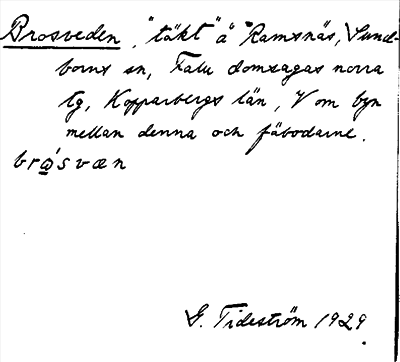 Brosveden, "täkt" å Ramsnäs, Sund-
borns sn, Falu domsagas norra
tg, Kopparbergs län, V om byn
mellan denna och fäbodarne.
brǻsvæn
G. Tideström 1929.